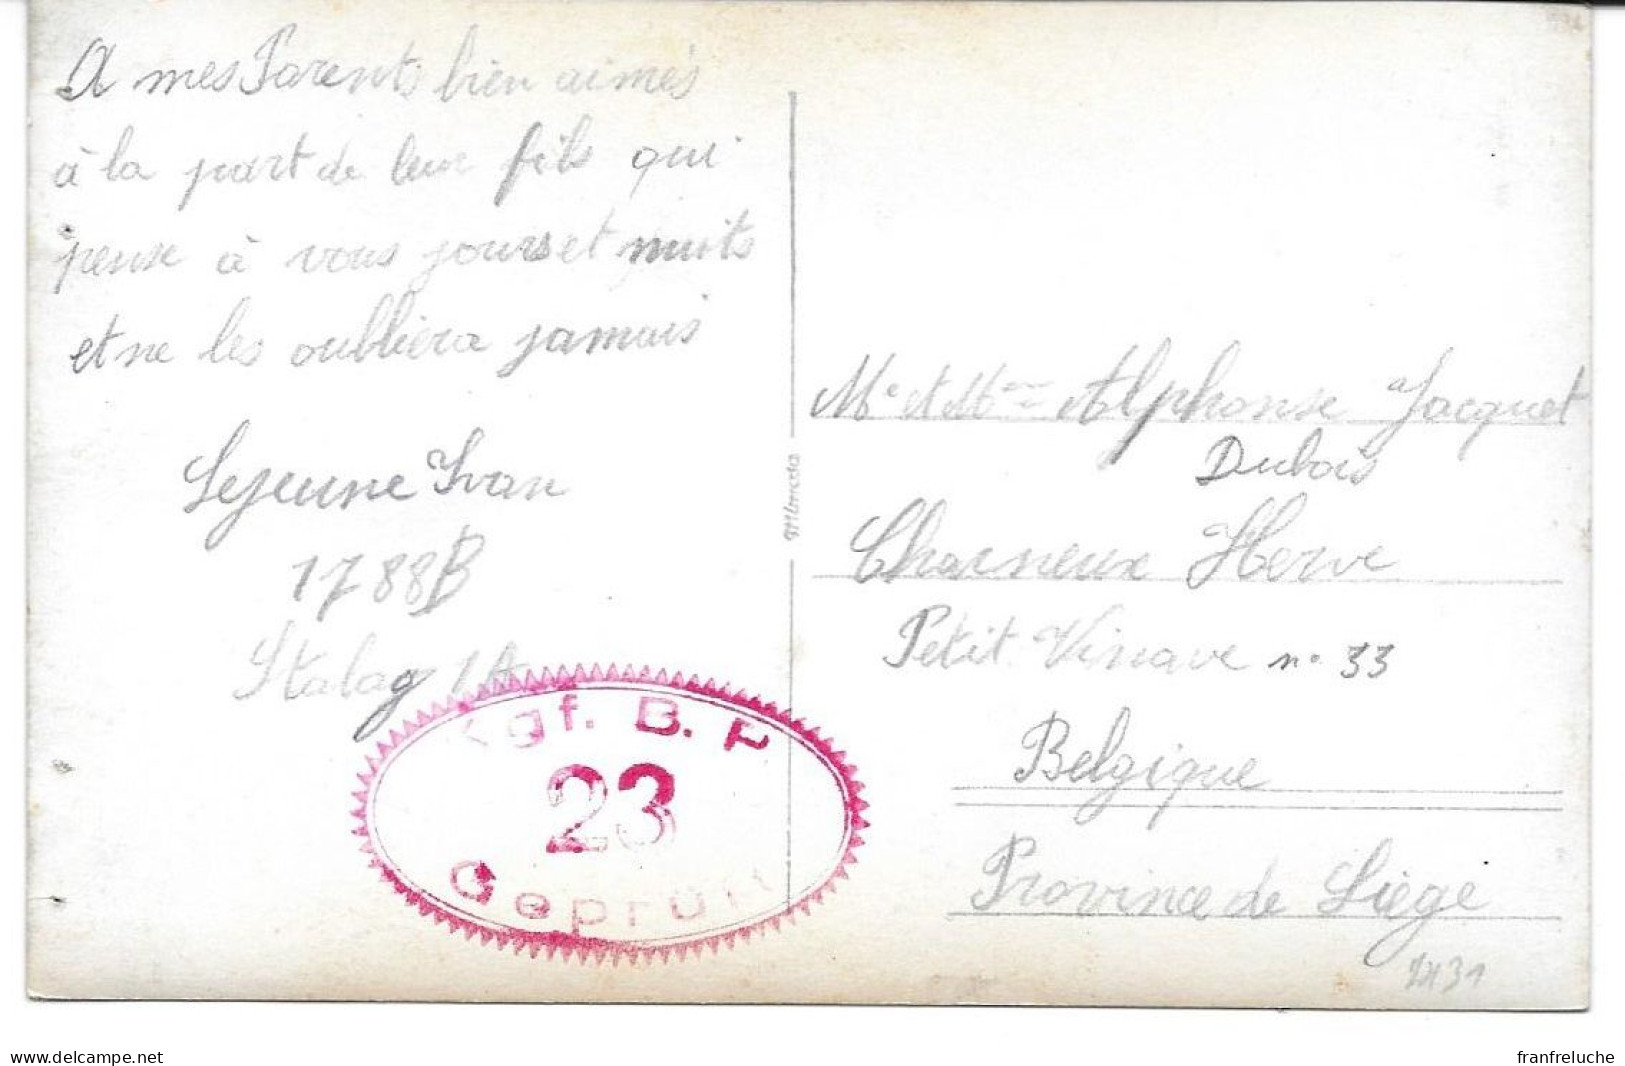 A mes Parents bien aimés
à la part de leur fils qui
pense à vous jours et nuits
et ne les oubliera jamais
Lejeune Ivan
1788B
Stalag 1A
Kgf. B. P
23
Geprüft
Mimosa
Mr et Mme Alphonse Jacquet
Dubois
Charneux Herve
Petit Vinave n° 33
Belgique
Province de Liège
delcampe.net
franfreluche